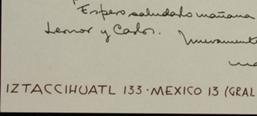 Espero saludarlo mañana
Leonor y Carlos.
Nuevamente
IZTACCIHUATL 133 · MEXICO 13 (GRAL